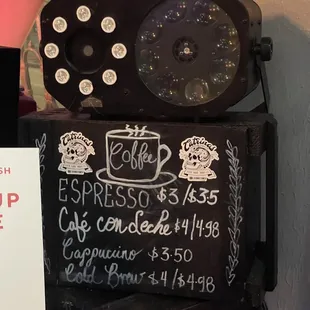 Coffee
ESPRESSO $3/$3.5
Café con Leche $4/4.98
Cappucino $3.50
Cold Brew $4/$4.98
SH
UP
E